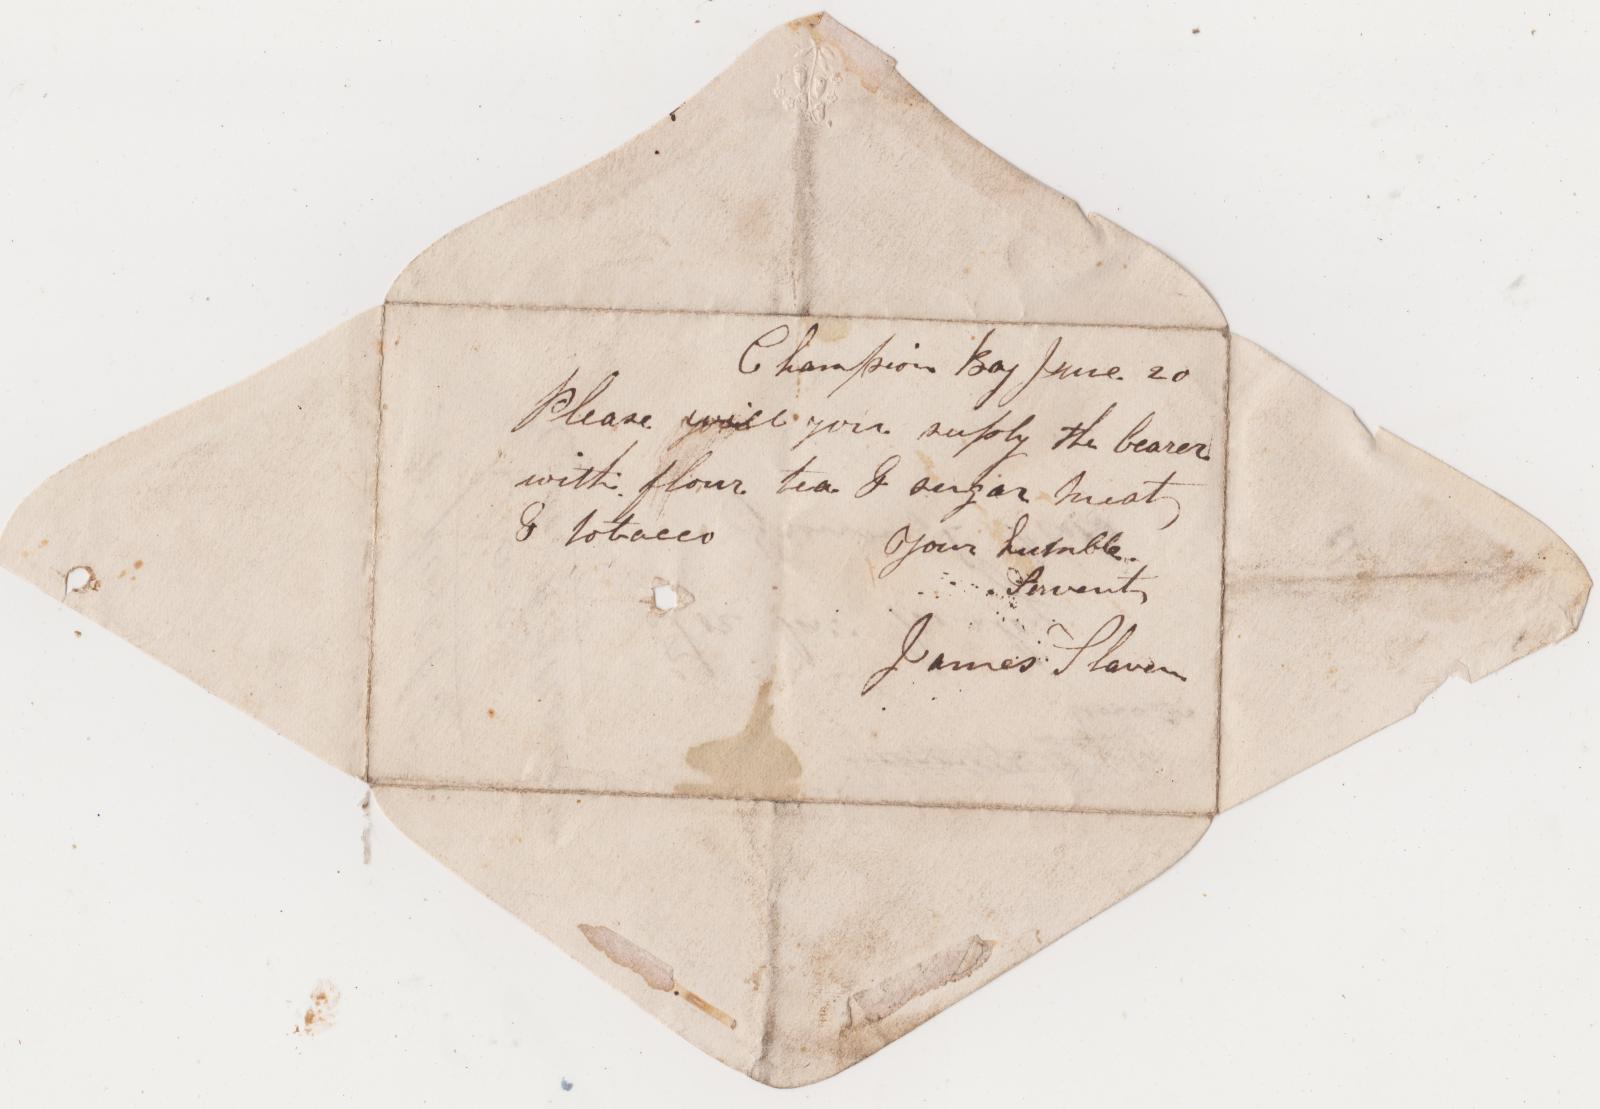 Champion Bay June 20
Please will you supply the bearer
with flour tea & sugar meat
& tobacco
Your humble
Servent
James Slaven